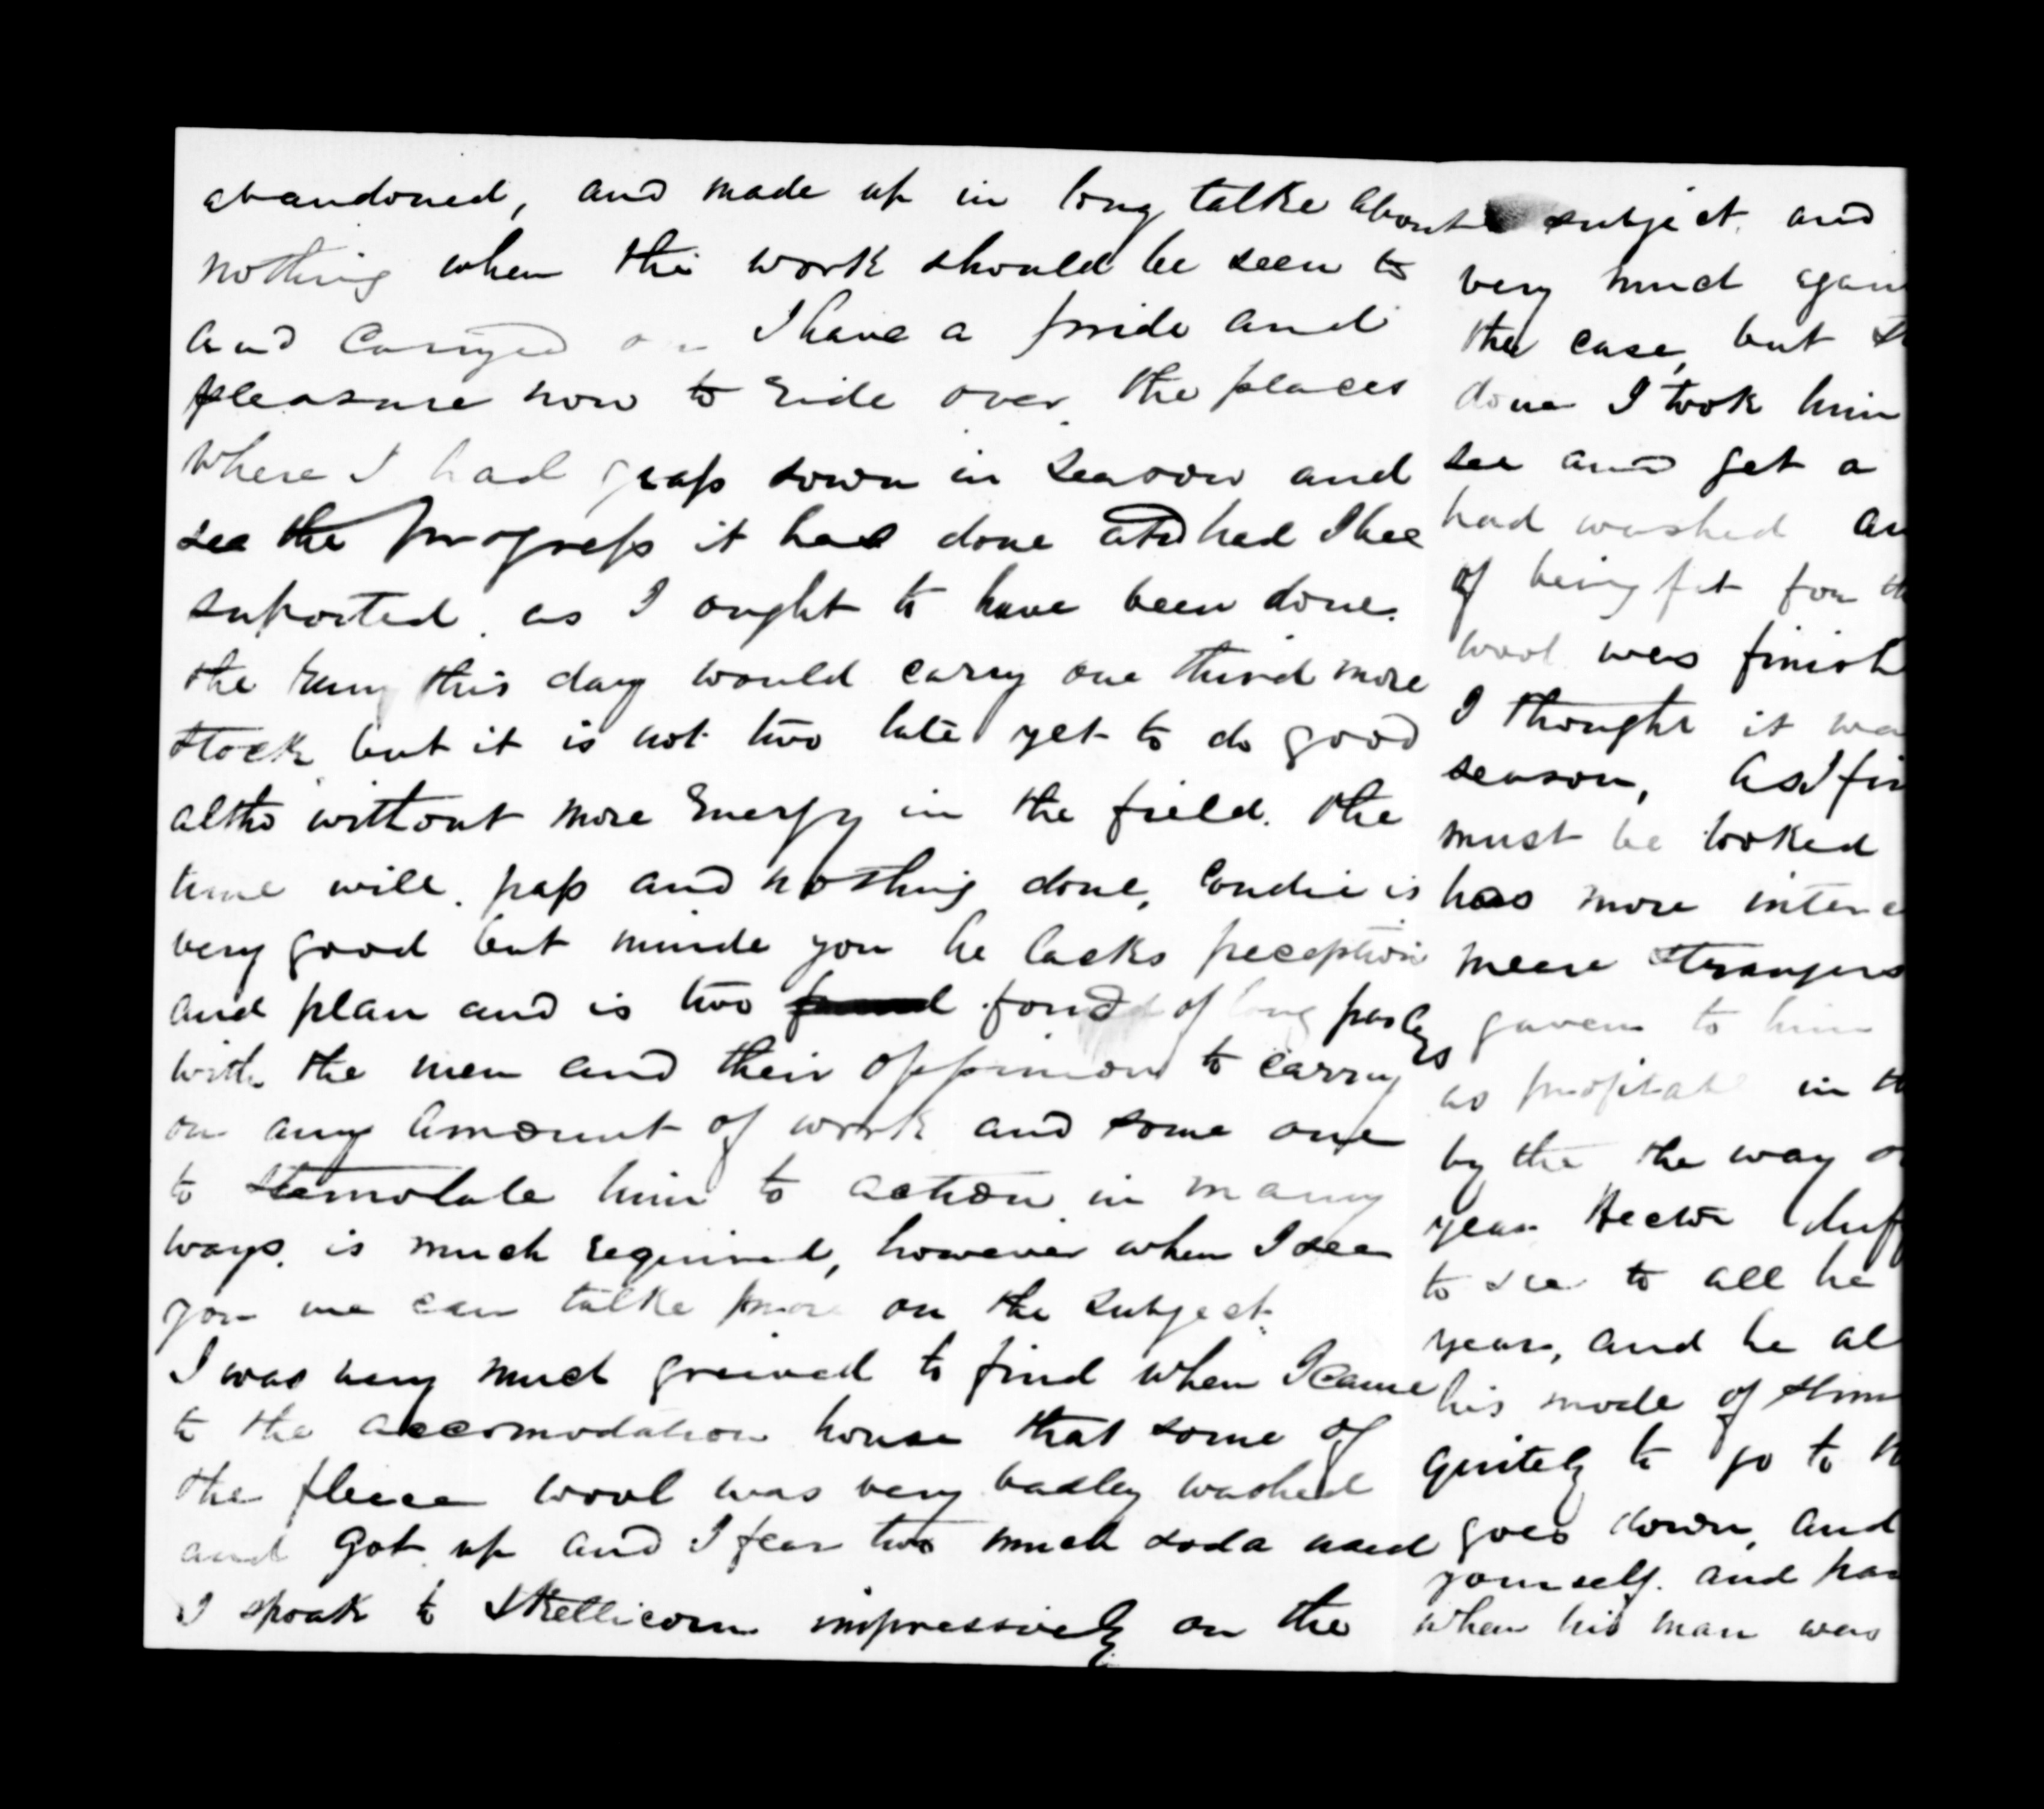 abandoned, and made up in long talke about
nothing when the work should be seen to
and carryed on I have a pride and
pleasure now to ride over the places
where I had grass sown in season and
see the progress it had done and had I bee
suported as I ought to have been done.
the run this day would carry one third more
stock but it is not two late yet to do good
altho without more Energy in the field. the
time will pass and nothing done, Condie is
very good but minde you he lacks preception
and plan and is two fond of long parleys
with the men and their oppinion to carry
on any amount of work and some one
to stemolate him to action in many
ways. is much required, however when I see
you we can talke more on the subject.
I was very much greived to find when I came
to the accomodation house that some of
the fleece wool was very badley washed
and got up and I fear two much soda used
I spoak to Skellicorn impressively on the
subject. and
very much again
the case, but
done I took him
see and get a
had washed an
of being fit for
wool was finish
I thought it wa
season, As I fin
must be looked
has more inter
meere strangers
gaven to him
as profitab in th
by the the way
year Hector
to see to all he
years, and he al
his mode of
quitely to go to
goes down, and
yourself. and ha
when his man was